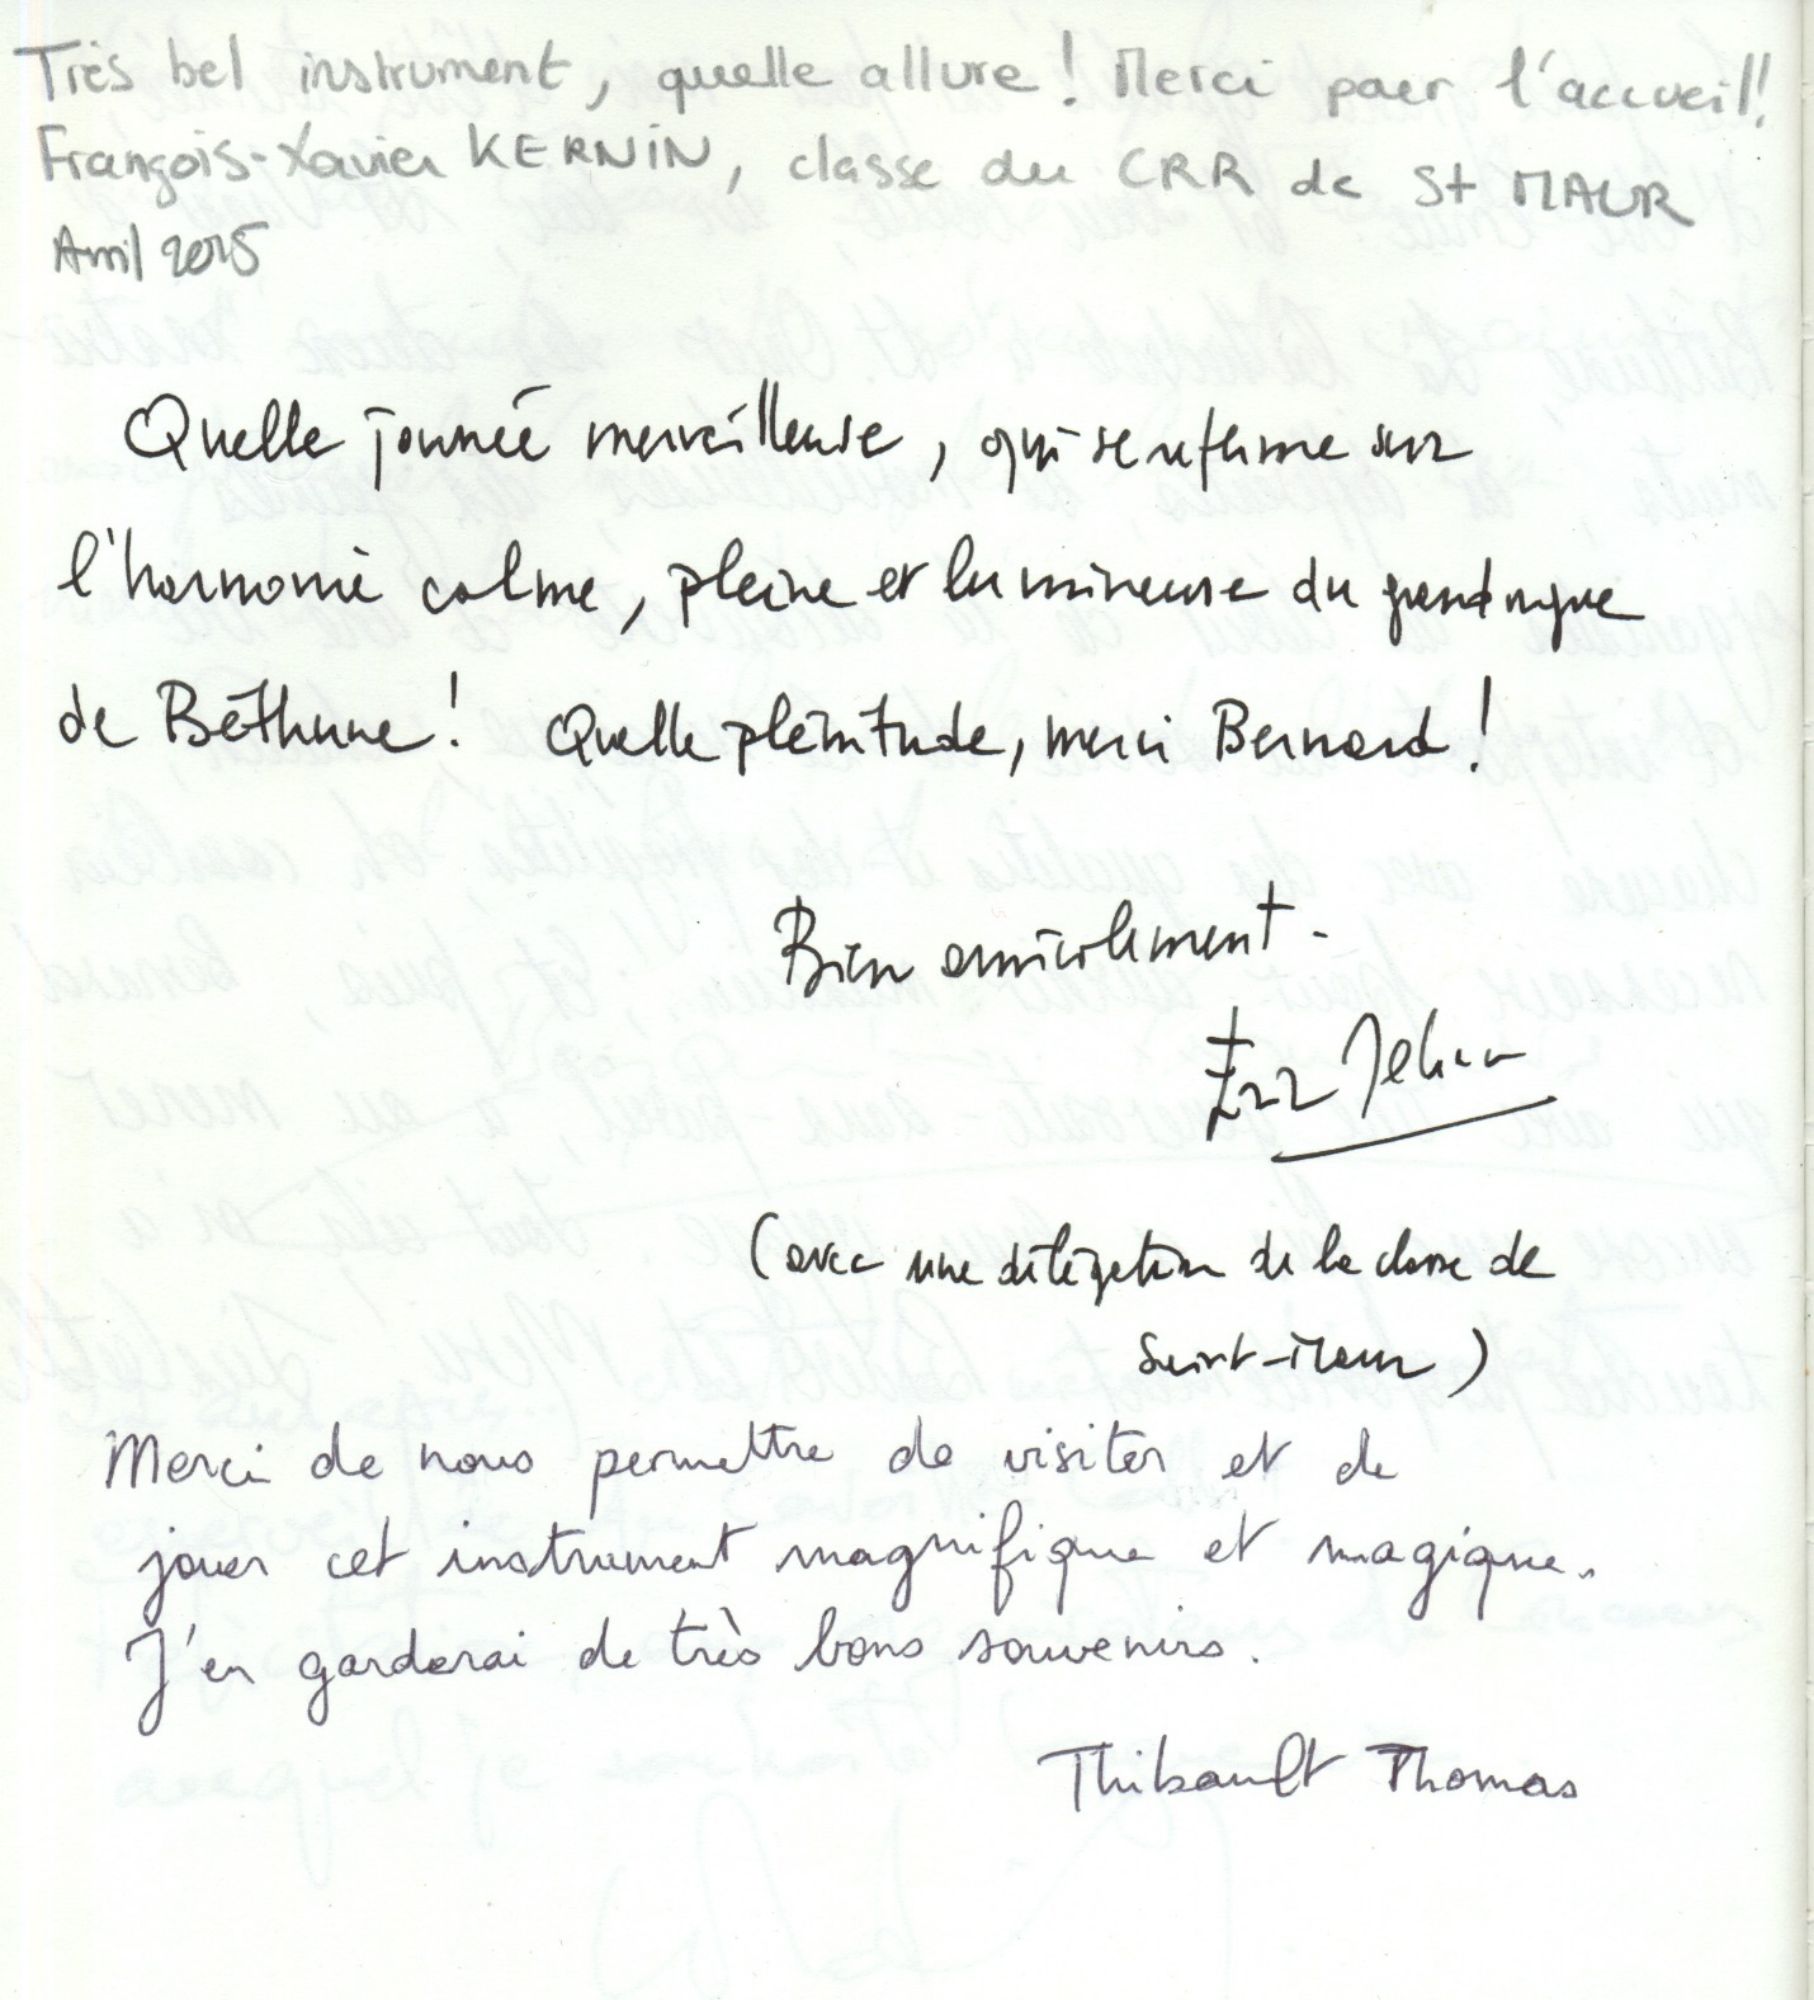 Très bel instrument, quelle allure ! Merci pour l'accueil !
François-Xavier KERNIN, classe du CRR de St MAUR
Avril 2015
Quelle journée merveilleuse, qui se referme sur
l'harmonie calme, pleine et lumineuse du grand orgue
de Béthune ! Quelle plénitude, merci Bernard !
Bien amicalement.
Eric Lebrun
(avec une délégation de la classe de
Saint-Maur)
Merci de nous permettre de visiter et de
jouer cet instrument magnifique et magique.
J'en garderai de très bons souvenirs.
Thibault Thomas